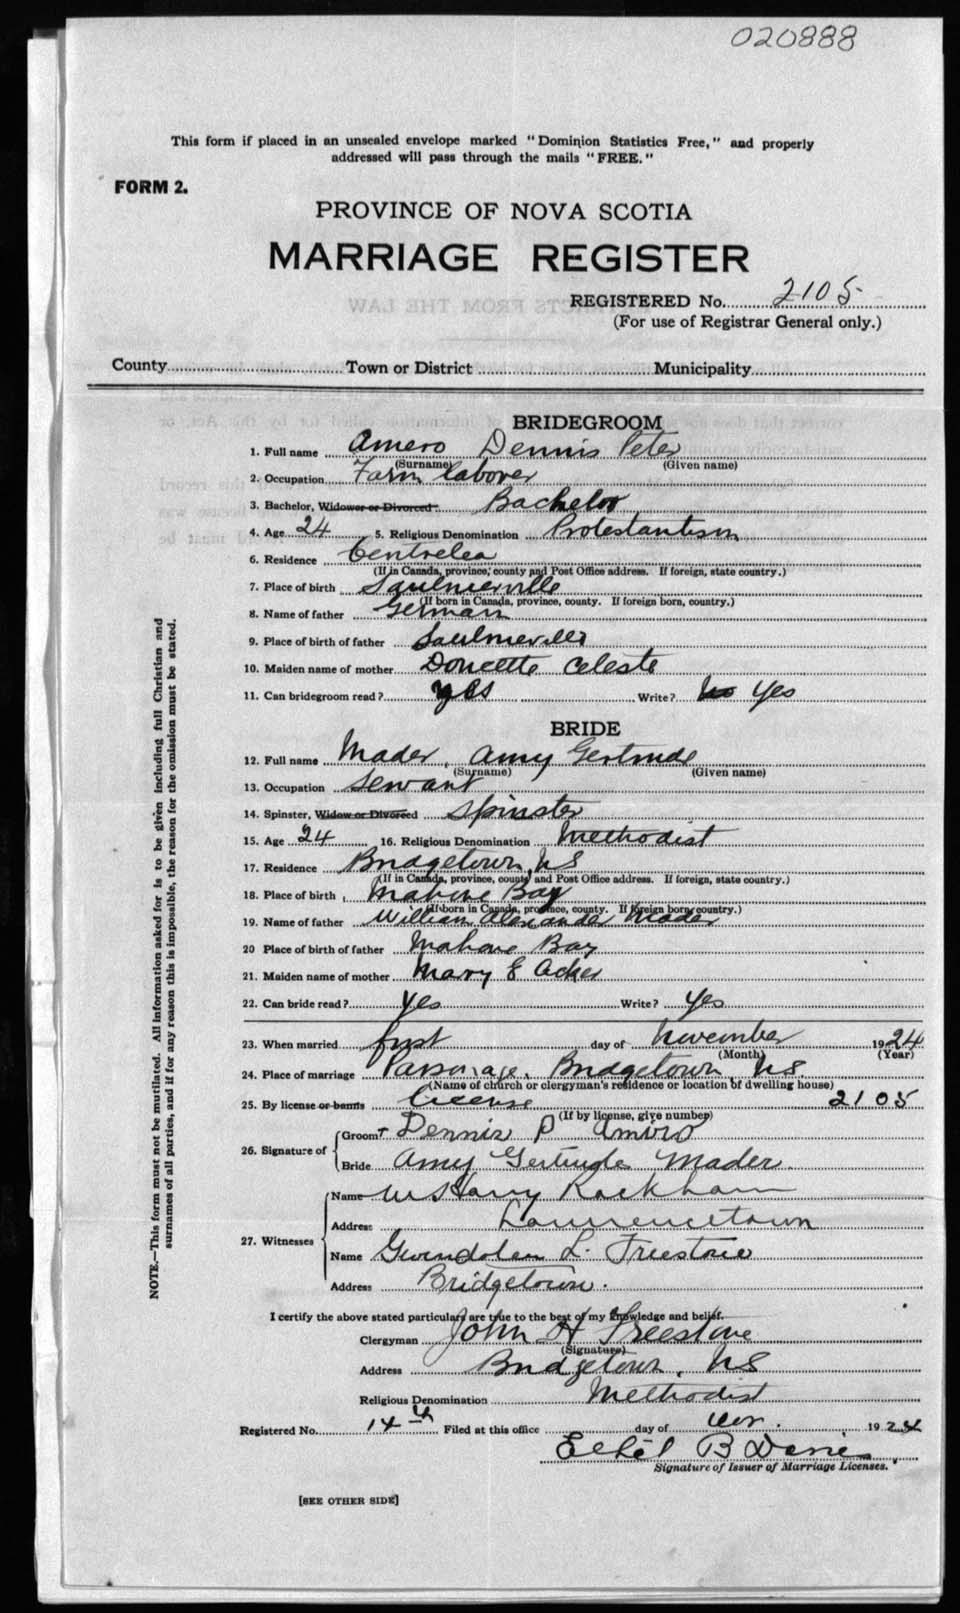 020888
This form if placed in an unsealed envelope marked "Dominion Statistics Free," and properly
addressed will pass through the mails "FREE."
FORM 2.
PROVINCE OF NOVA SCOTIA
MARRIAGE REGISTER
REGISTERED No. 2105
(For use of Registrar General only.)
County Town or District Municipality
BRIDEGROOM
1. Full name Amero Dennis Peter
(Surname) (Given name)
2. Occupation Farm laborer
3. Bachelor, Widower or Divorced Bachelor
4. Age 24 5. Religious Denomination Protestantism
6. Residence Centrelea
(If in Canada, province, county and Post Office address. If foreign, state country.)
7. Place of birth Saulnierville
(If born in Canada, province, county. If foreign born, country.)
8. Name of father German
9. Place of birth of father Saulnerville
10. Maiden name of mother Doucette Celeste
11. Can bridegroom read? yes Write? No Yes
BRIDE
12. Full name Mader, Amy Gertrude
(Surname) (Given name)
13. Occupation Servant
14. Spinster, Widow or Divorced Spinster
15. Age 24 16. Religious Denomination Methodist
17. Residence Bridgetown, NS
(If in Canada, province, county and Post Office address. If foreign, state country.)
18. Place of birth Mahone Bay
(If born in Canada, province, county. If foreign born, country.)
19. Name of father William Alexander Mader
20 Place of birth of father Mahone Bay
21. Maiden name of mother Mary E Acker
22. Can bride read? Yes Write? Yes
23. When married first day of November 1924
(Month) (Year)
24. Place of marriage Parsonage, Bridgetown, NS.
(Name of church or clergyman's residence or location of dwelling house)
25. By license or banns License 2105
(If by license, give number)
26. Signature of
Groom Dennis P Amiro
Bride Amy Gertrude Mader.
27. Witnesses
Name Harry Rackham
Address Lawrencetown
Name Gwendolen L. Freestone
Address Bridgetown.
I certify the above stated particulars are true to the best of my knowledge and belief.
Clergyman John H Freestone
(Signature)
Address Bridgetown, NS
Religious Denomination Methodist
Registered No. 14 Filed at this office day of Nov. 1924
Ethel B Davies
Signature of Issuer of Marriage Licenses.
[SEE OTHER SIDE]
NOTE.—This form must not be mutilated. All information asked for is to be given including full Christian and
surnames of all parties, and if for any reason this is impossible, the reason for the omission must be stated.